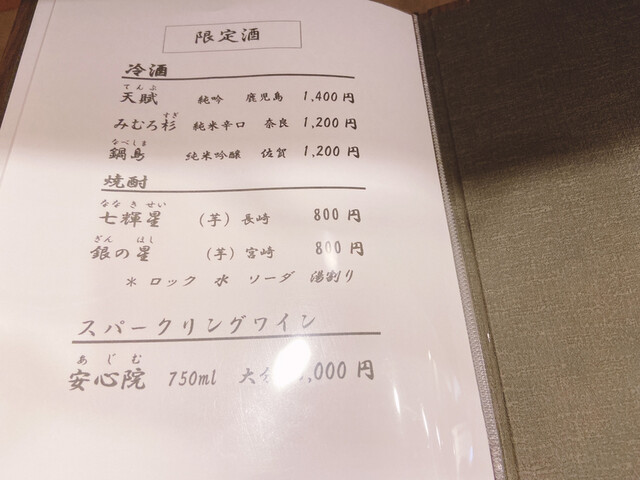 限定酒
冷酒
てんぶ
天賦 純吟 鹿児島 1,400円
すぎ
みむろ杉 純米辛口 奈良 1,200円
なべしま
鍋島 純米吟醸 佐賀 1,200円
焼酎
ななきせい
七輝星 (芋) 長崎 800円
ぎん ほし
銀の星 (芋) 宮崎 800円
* ロック 水 ソーダ 湯割り
スパークリングワイン
あじむ
安心院 750ml 大分 ,000円